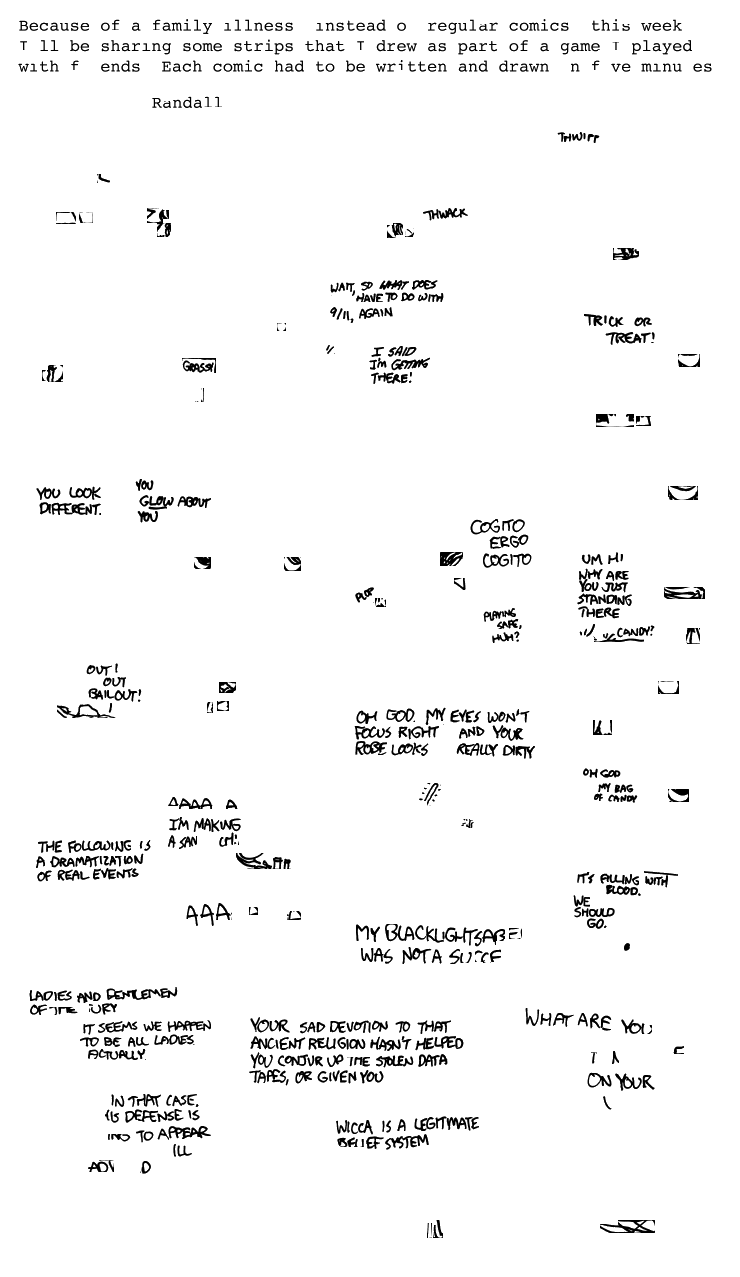 Because of a family illness instead o regular comics this week
I ll be sharing some strips that I drew as part of a game I played
with f ends Each comic had to be written and drawn n f ve minu es
Randall
THWIPP
THWACK
WAIT, SO WHAT DOES
HAVE TO DO WITH
9/11, AGAIN
I SAID
I'M GETTING
THERE!
TRICK OR
TREAT!
GRASSY
YOU LOOK
DIFFERENT.
YOU
GLOW ABOUT
YOU
COGITO
ERGO
COGITO
PLOP
PLAYING
SAFE,
HUH?
UM HI
WHY ARE
YOU JUST
STANDING
THERE
CANDY?
OUT!
OUT
BAILOUT!
OH GOD. MY EYES WON'T
FOCUS RIGHT AND YOUR
ROBE LOOKS REALLY DIRTY
OH GOD
MY BAG
OF CANDY
AAAA A
I'M MAKING
A SAN
THE FOLLOWING IS
A DRAMATIZATION
OF REAL EVENTS
IT'S FILLING WITH
BLOOD.
WE
SHOULD
GO.
AAA
MY BLACKLIGHTSABE
WAS NOT A
LADIES AND GENTLEMEN
OF THE JURY
IT SEEMS WE HAPPEN
TO BE ALL LADIES
ACTUALLY.
IN THAT CASE,
DEFENSE IS
TO APPEAR
YOUR SAD DEVOTION TO THAT
ANCIENT RELIGION HASN'T HELPED
YOU CONJUR UP THE STOLEN DATA
TAPES, OR GIVEN YOU
WICCA IS A LEGITIMATE
BELIEF SYSTEM
WHAT ARE YOU
ON YOUR